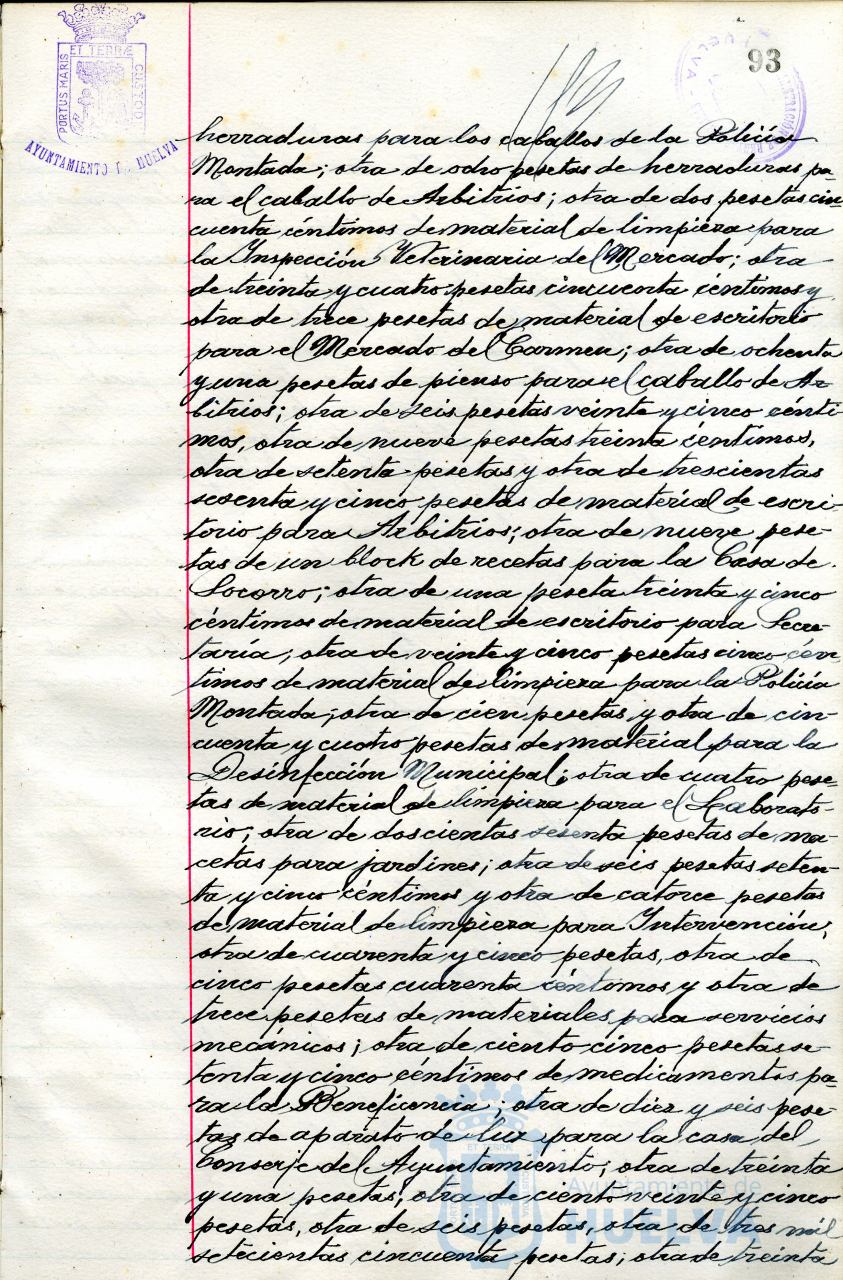 93
PORTUS MARIS ET TERRÆ CUSTODIA
AYUNTAMIENTO DE HUELVA
herraduras para los caballos de la Policía
Montada; otra de ocho pesetas de herraduras pa-
ra el caballo de Arbitrios; otra de dos pesetas cin-
cuenta céntimos de material de limpieza para
la Inspección Veterinaria del Mercado; otra
de treinta y cuatro pesetas cincuenta céntimos y
otra de trece pesetas de material de escritorio
para el Mercado del Carmen; otra de ochenta
y una pesetas de pienso para el caballo de Ar-
bitrios; otra de seis pesetas veinte y cinco cénti-
mos, otra de nueve pesetas treinta céntimos,
otra de setenta pesetas y otra de trescientas
sesenta y cinco pesetas de material de escri-
torio para Arbitrios; otra de nueve pese-
tas de un block de recetas para la Casa de
Socorro; otra de una peseta treinta y cinco
céntimos de material de escritorio para Secre-
taría; otra de veinte y cinco pesetas cinco cén-
timos de material de limpieza para la Policía
Montada; otra de cien pesetas y otra de cin-
cuenta y cuatro pesetas de material para la
Desinfección Municipal; otra de cuatro pese-
tas de material de limpieza para el Laborato-
rio; otra de doscientas sesenta pesetas de ma-
cetas para jardines; otra de seis pesetas seten-
ta y cinco céntimos y otra de catorce pesetas
de material de limpieza para Intervención;
otra de cuarenta y cinco pesetas, otra de
cinco pesetas cuarenta céntimos y otra de
trece pesetas de materiales para servicios
mecánicos; otra de ciento cinco pesetas se-
tenta y cinco céntimos de medicamentos pa-
ra la Beneficencia; otra de diez y seis pese-
tas de aparato de luz para la casa del
Conserje del Ayuntamiento; otra de treinta
y una pesetas, otra de ciento veinte y cinco
pesetas, otra de seis pesetas, otra de tres mil
setecientas cincuenta pesetas; otra de treinta
Ayuntamiento de
HUELVA